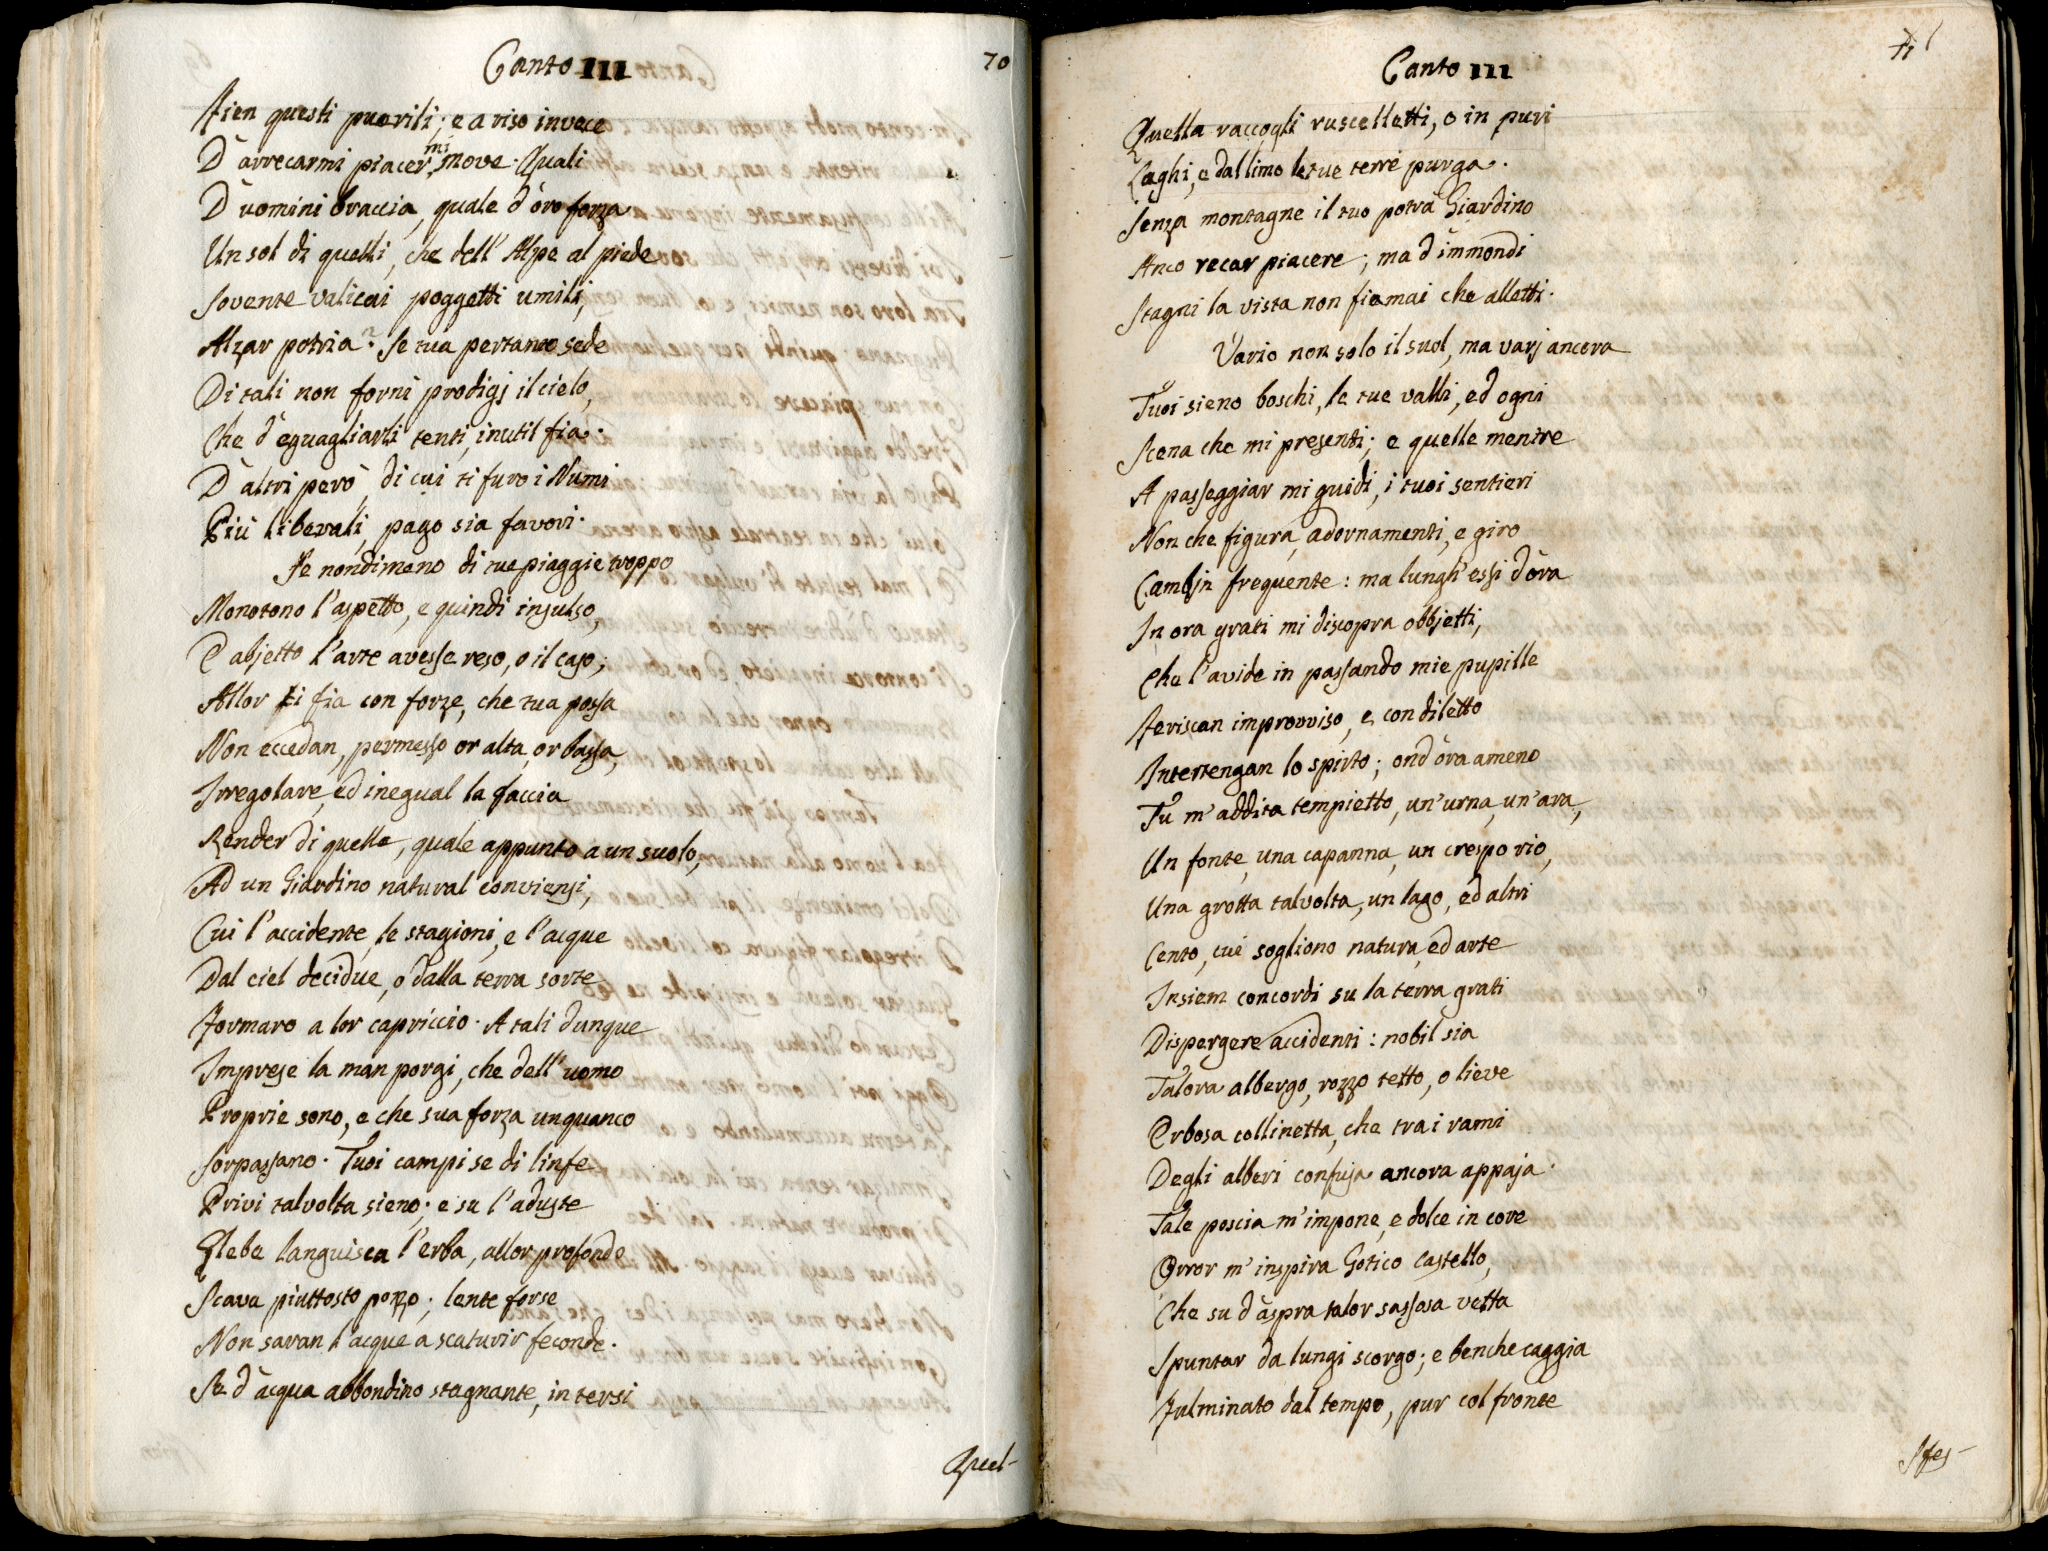 Canto III
70
Fien questi puerili; e a riso invece
D'arrecarmi piacer, mi move. Quali
D'uomini braccia, quale d'oro forza
Un sol di quelli, che dell'Alpe al piede
Sovente valicai poggetti umili,
Alzar potria? Se tua pertanto sede
Di tali non fornì prodigj il cielo,
Che d'eguagliarli tenti, inutil fia.
D'altri però, di cui ti furo i Numi
Più liberali, pago sia favori.
Se nondimeno di tue piaggie troppo
Monotono l'aspetto, e quindi insulso,
E abjetto l'arte avesse reso, o il caso;
Allor ti fia con forze, che tua possa
Non eccedan, permesso or alta, or bassa,
Irregolare, ed inegual la faccia
Render di quelle, quale appunto a un suolo,
Ad un Giardino natural conviensi,
Cui l'accidente, le stagioni, e l'acque
Dal ciel decidue, o dalla terra sorte
Formaro a lor capriccio. A tali dunque
Imprese la man porgi, che dell'uomo
Proprie sono, e che sua forza unquanco
Sorpassano. Tuoi campi se di linfe
Privi talvolta sieno; e su l'aduste
Glebe languisca l'erba, allor profonde
Scava piuttosto pozzo; lente forse
Non saran l'acque a scaturir feconde.
Se d'acqua abbondino stagnante, in tersi
Quel-
Canto III
71
Quella raccogli ruscelletti, o in puri
Laghi, e dal limo le tue terre purga.
Senza montagne il tuo potrà Giardino
Anco recar piacere; ma d'immondi
Stagni la vista non fia mai che alletti.
Vario non solo il suol, ma varj ancora
Tuoi sieno boschi, le tue valli, ed ogni
Scena che mi presenti; e quelle mentre
A passeggiar mi guidi, i tuoi sentieri
Non che figura, adornamenti, e giro
Cambin frequente: ma lungh'essi d'ora
In ora grati mi discopra obbjetti,
Che l'avide in passando mie pupille
Feriscan improvviso, e con diletto
Intertengan lo spirto; ond'ora ameno
Tu m'addita tempietto, un'urna, un'ara,
Un fonte, una capanna, un crespo rio,
Una grotta talvolta, un lago, ed altri
Cento, cui sogliono natura, ed arte
Insiem concordi su la terra grati
Dispergere accidenti: nobil sia
Talora albergo, rozzo tetto, o lieve
Erbosa collinetta, che tra i rami
Degli alberi confusa ancora appaja.
Tale poscia m'impone, e dolce in core
Orror m'inspira Gotico Castello,
Che su d'aspra talor sassosa vetta
Spuntar da lungi scorgo; e benche caggia
Fulminato dal tempo, pur col fronte